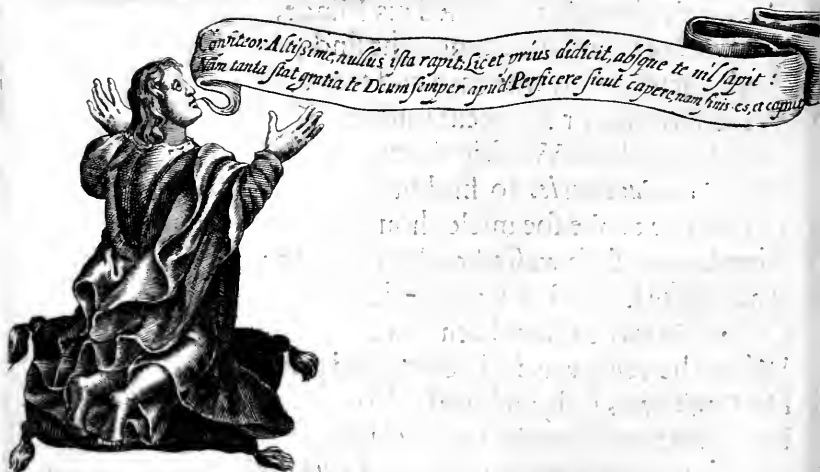 Confiteor Altißime, nullus ista rapit: Licet prius didicit, absque te nil sapit:
Nam tanta stat gratia te Deum semper apud: Perficere sicut capere, nam finis es, et caput